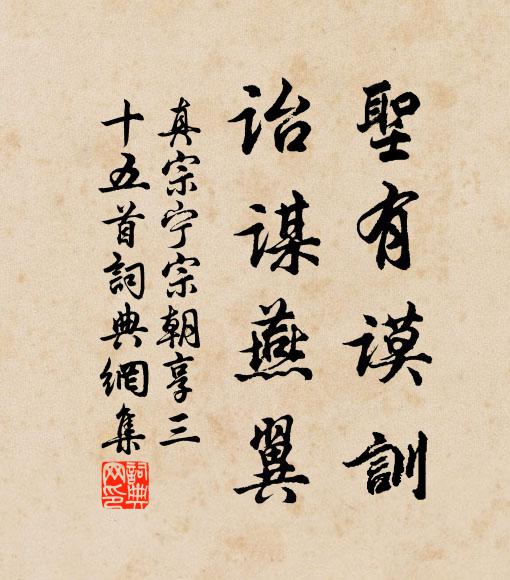 聖有謨訓
詒謀燕翼
真宗宁宗朝享三
十五首詞典網集
詞典
网印